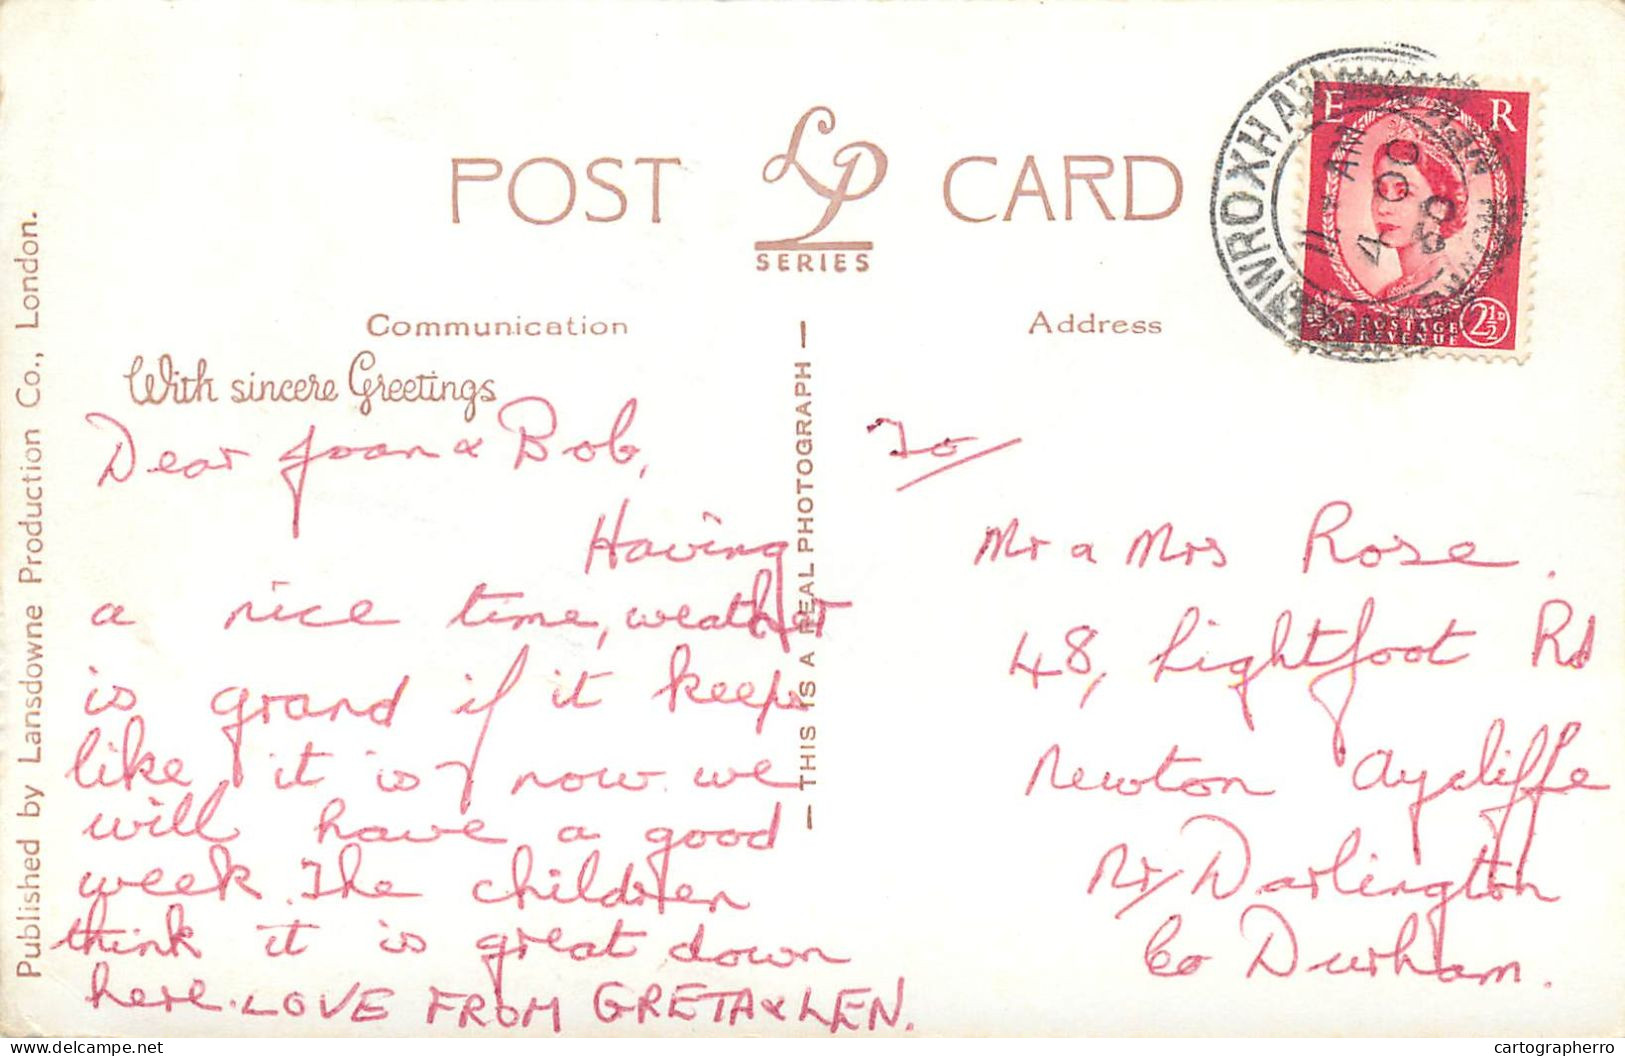 POST LP CARD
SERIES
Communication
Address
With sincere Greetings
Dear Joan & Bob,
Having
a nice time, weather
is grand if it keeps
like it is now we
will have a good
week. The children
think it is great down
here. LOVE FROM GRETA & LEN.
To/
Mr & Mrs Rose.
48, Lightfoot Rd
Newton Aycliffe
Nr/ Darlington
Co Durham.
— THIS IS A REAL PHOTOGRAPH —
Published by Lansdowne Production Co., London.
WROXHAM
NORWICH
11 - AM
4 OC
60
E R
POSTAGE
REVENUE
2½D
delcampe.net
cartographerro